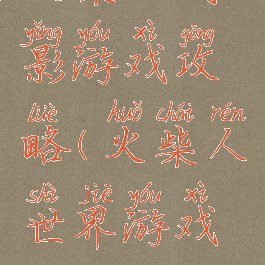 yǐng yóu xì gōng
影游戏攻
lüè huǒ chái rén
略(火柴人
shì jiè yóu xì
世界游戏